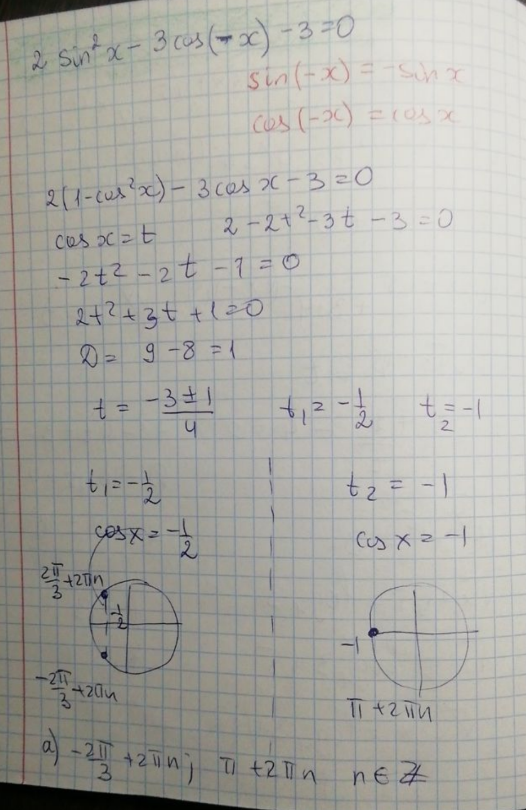 2 sin²x - 3cos(-x) - 3 = 0
sin(-x) = -sin x
cos(-x) = cos x
2(1-cos²x) - 3cosx - 3 = 0
cos x = t 2 - 2t² - 3t - 3 = 0
-2t² - 2t - 1 = 0
2t² + 3t + 1 = 0
D = 9 - 8 = 1
t = (-3 ± 1)/4 t₁ = -1/2 t₂ = -1
t₁ = -1/2 t₂ = -1
cosx = -1/2 cos x = -1
2π/3 + 2πn
-1/2
-1
-2π/3 + 2πn
π + 2πn
а) -2π/3 + 2πn; π + 2πn n ∈ Z